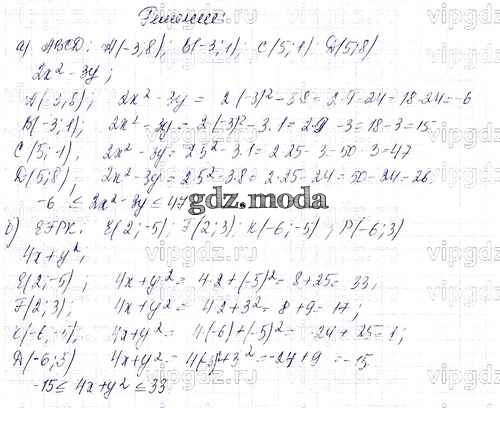 Решение:
а) ABCD: A(-3;8); B(-3;1); C(5;1) D(5;8)
2x² - 3y;
A(-3;8); 2x² - 3y = 2(-3)² - 3·8 = 2·9 - 24 = 18 - 24 = -6
B(-3;1); 2x² - 3y = 2(-3)² - 3·1 = 2·9 - 3 = 18 - 3 = 15
C(5;1), 2x² - 3y = 2·5² - 3·1 = 2·25 - 3 = 50 - 3 = 47
D(5;8), 2x² - 3y = 2·5² - 3·8 = 2·25 - 24 = 50 - 24 = 26.
-6 ≤ 2x² - 3y ≤ 47
gdz.moda
б) EFPK: E(2;-5); F(2;3); K(-6;-5); P(-6;3)
4x + y²;
E(2;-5); 4x + y² = 4·2 + (-5)² = 8 + 25 = 33;
F(2;3); 4x + y² = 4·2 + 3² = 8 + 9 = 17;
K(-6;-5); 4x + y² = 4(-6) + (-5)² = -24 + 25 = 1;
(-6;3) 4x + y² = 3² = -24 + 9 = -15
-15 ≤ 4x + y² ≤ 33
vipgdz